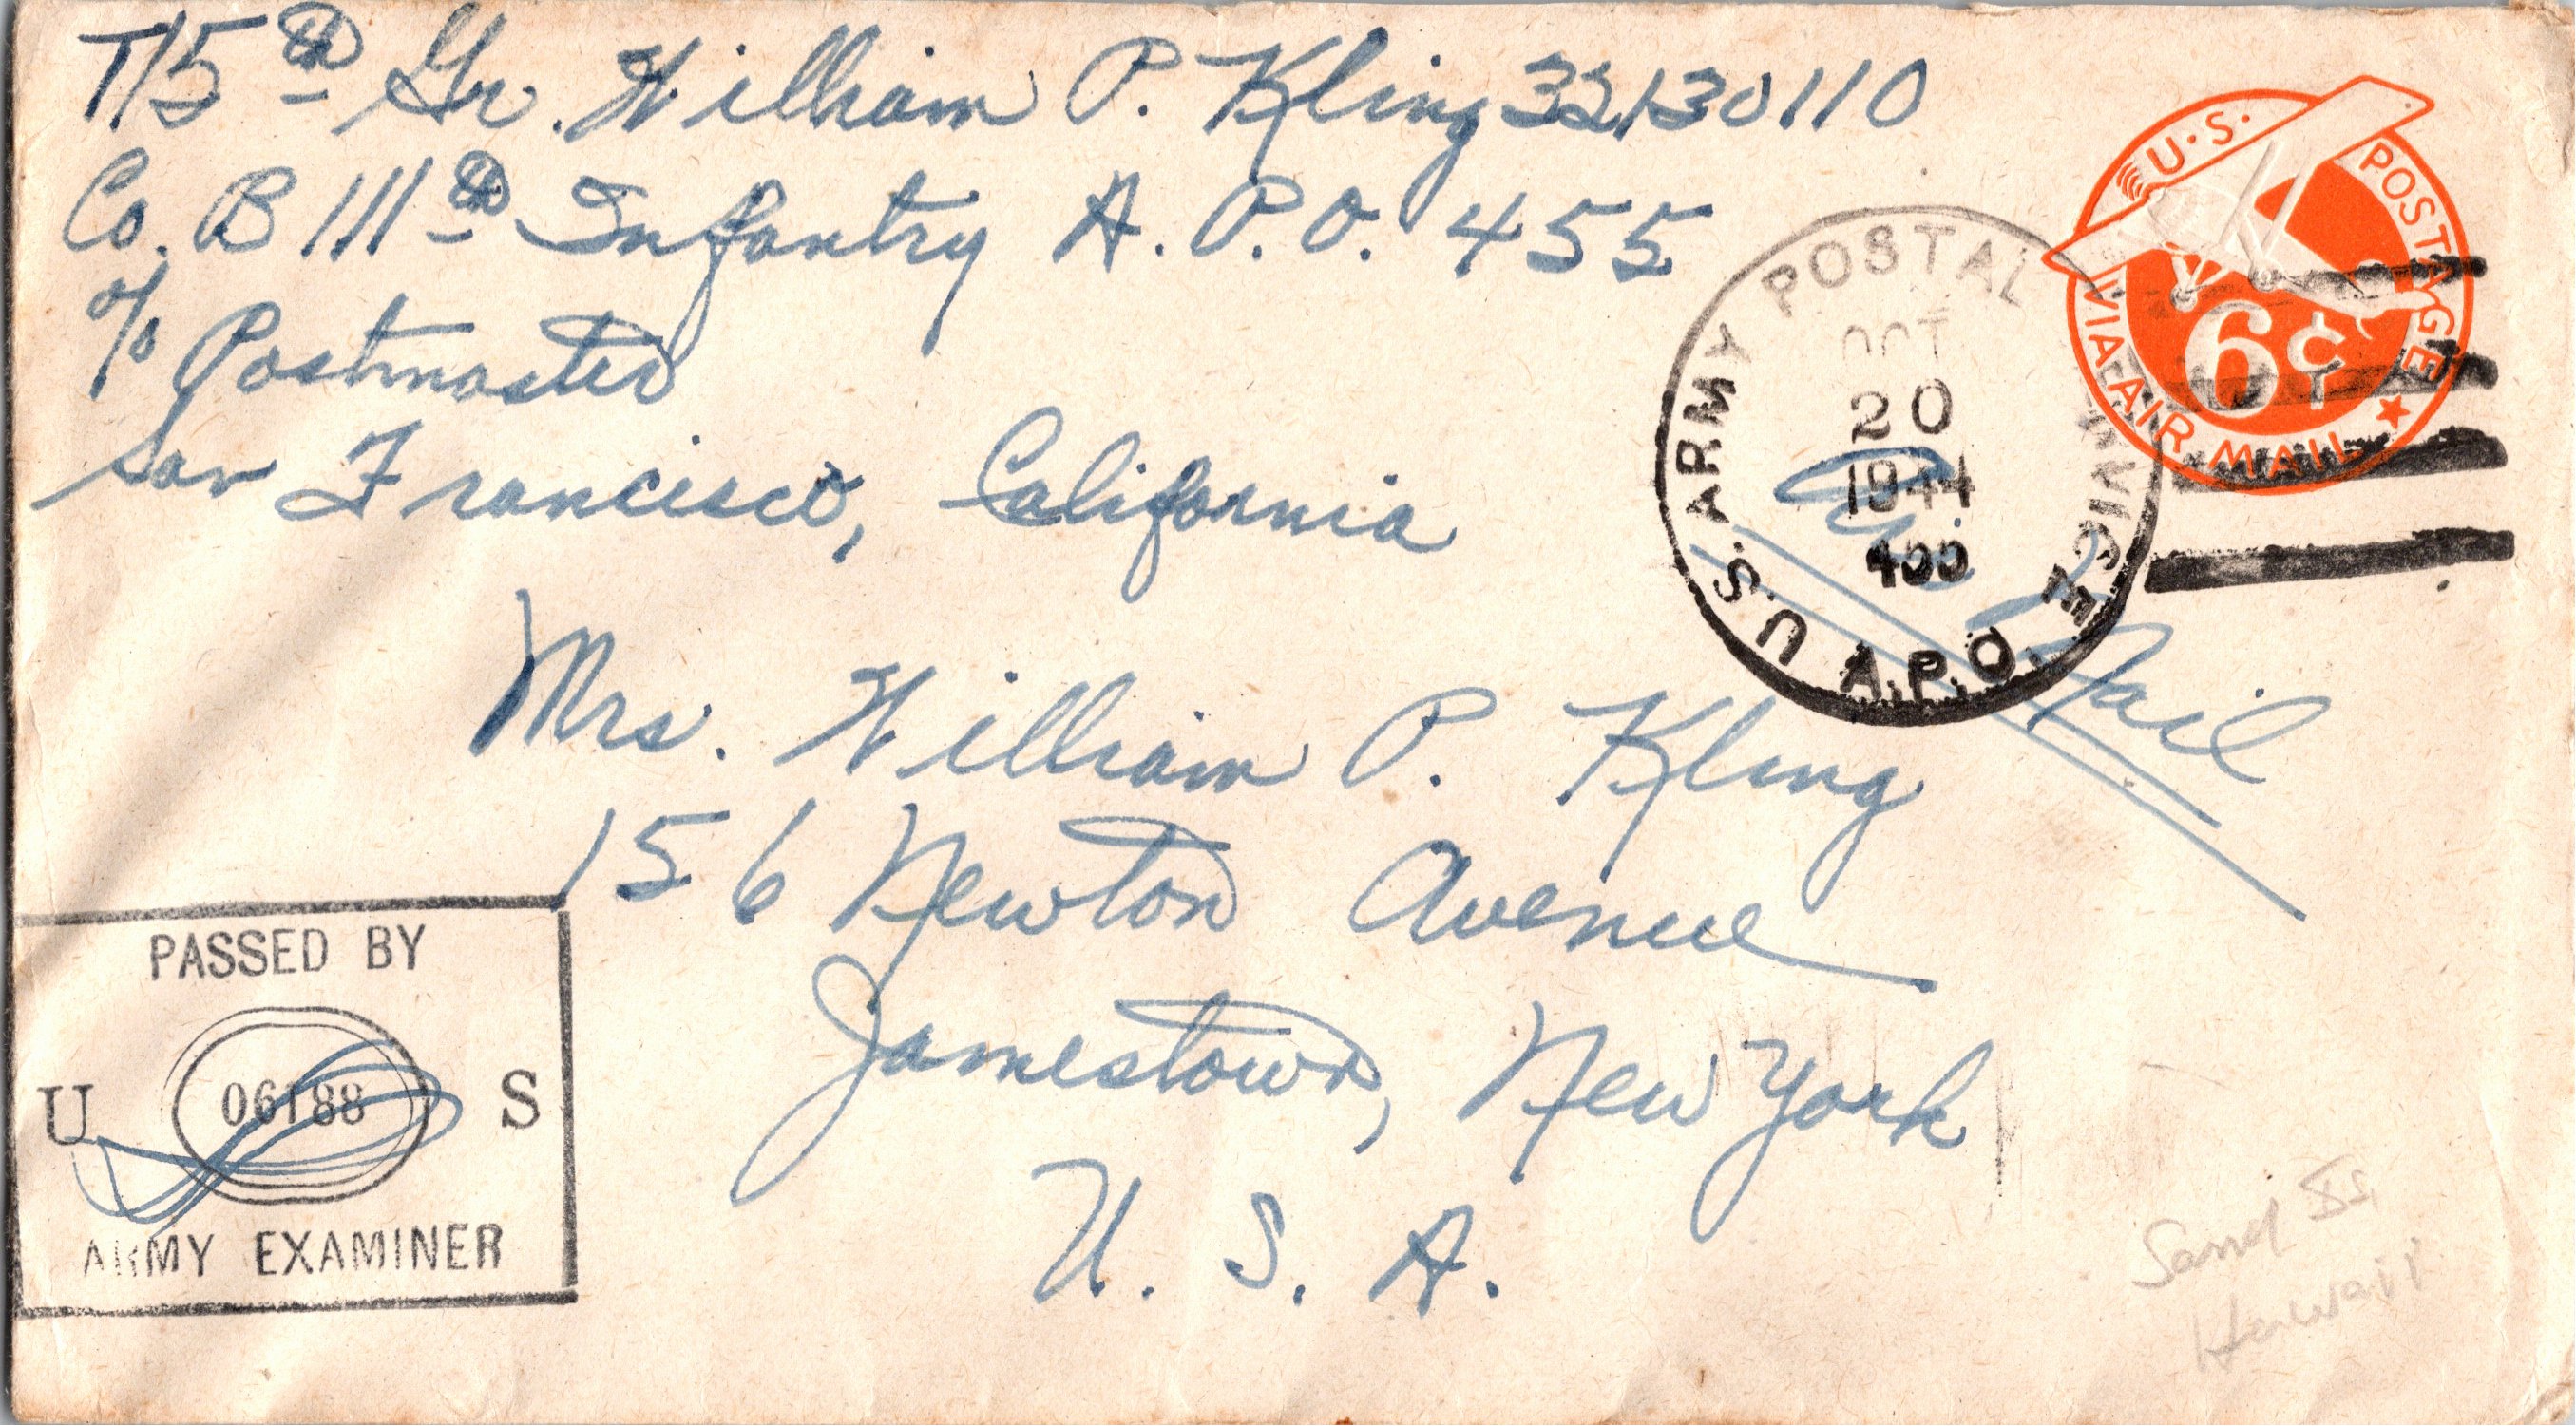 T/5th Gr. William P. Kling 32130110
Co. B 111th Infantry A.P.O. 455
c/o Postmaster
San Francisco, California
U.S. POSTAGE
VIA AIR MAIL
6¢
U.S. ARMY POSTAL SERVICE
A.P.O.
OCT
20
1944
455
Air Mail
Mrs. William P. Kling
156 Newton Avenue
Jamestown, New York
U. S. A.
PASSED BY
U 06188 S
ARMY EXAMINER
Sand Is,
Hawaii